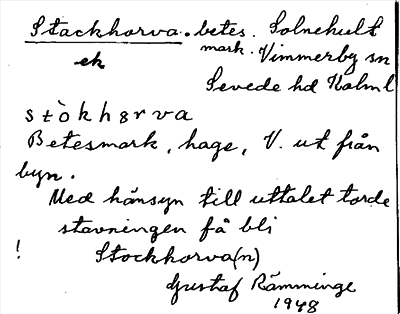 Stackhorva . betes. Solnehult
ek mark. Vimmerby sn
Sevede hd Kalm l
stòkhɜrva
Betesmark, hage, V. ut från
byn.
Med hänsyn till uttalet torde
stavningen få bli
! Stockhorva(n)
Gustaf Rämminge
1948